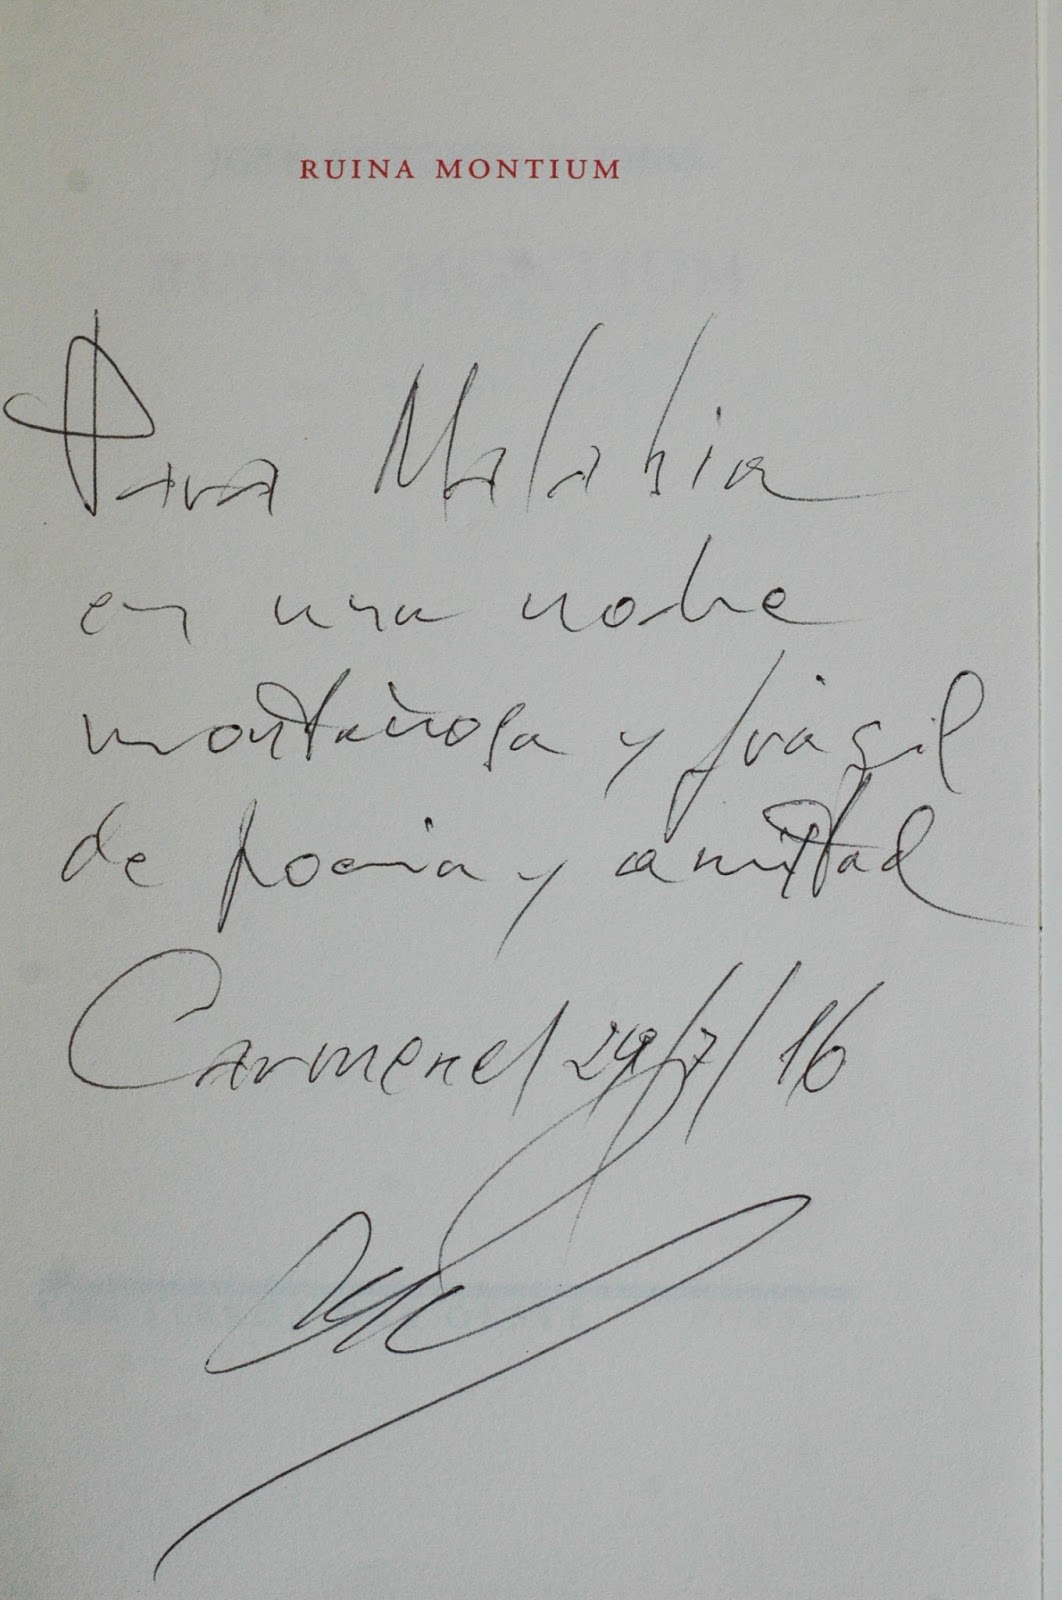 RUINA MONTIUM
Para Malahia
en una noche
montañosa y frágil
de poesía y amistad
Carmenes 29/7/16